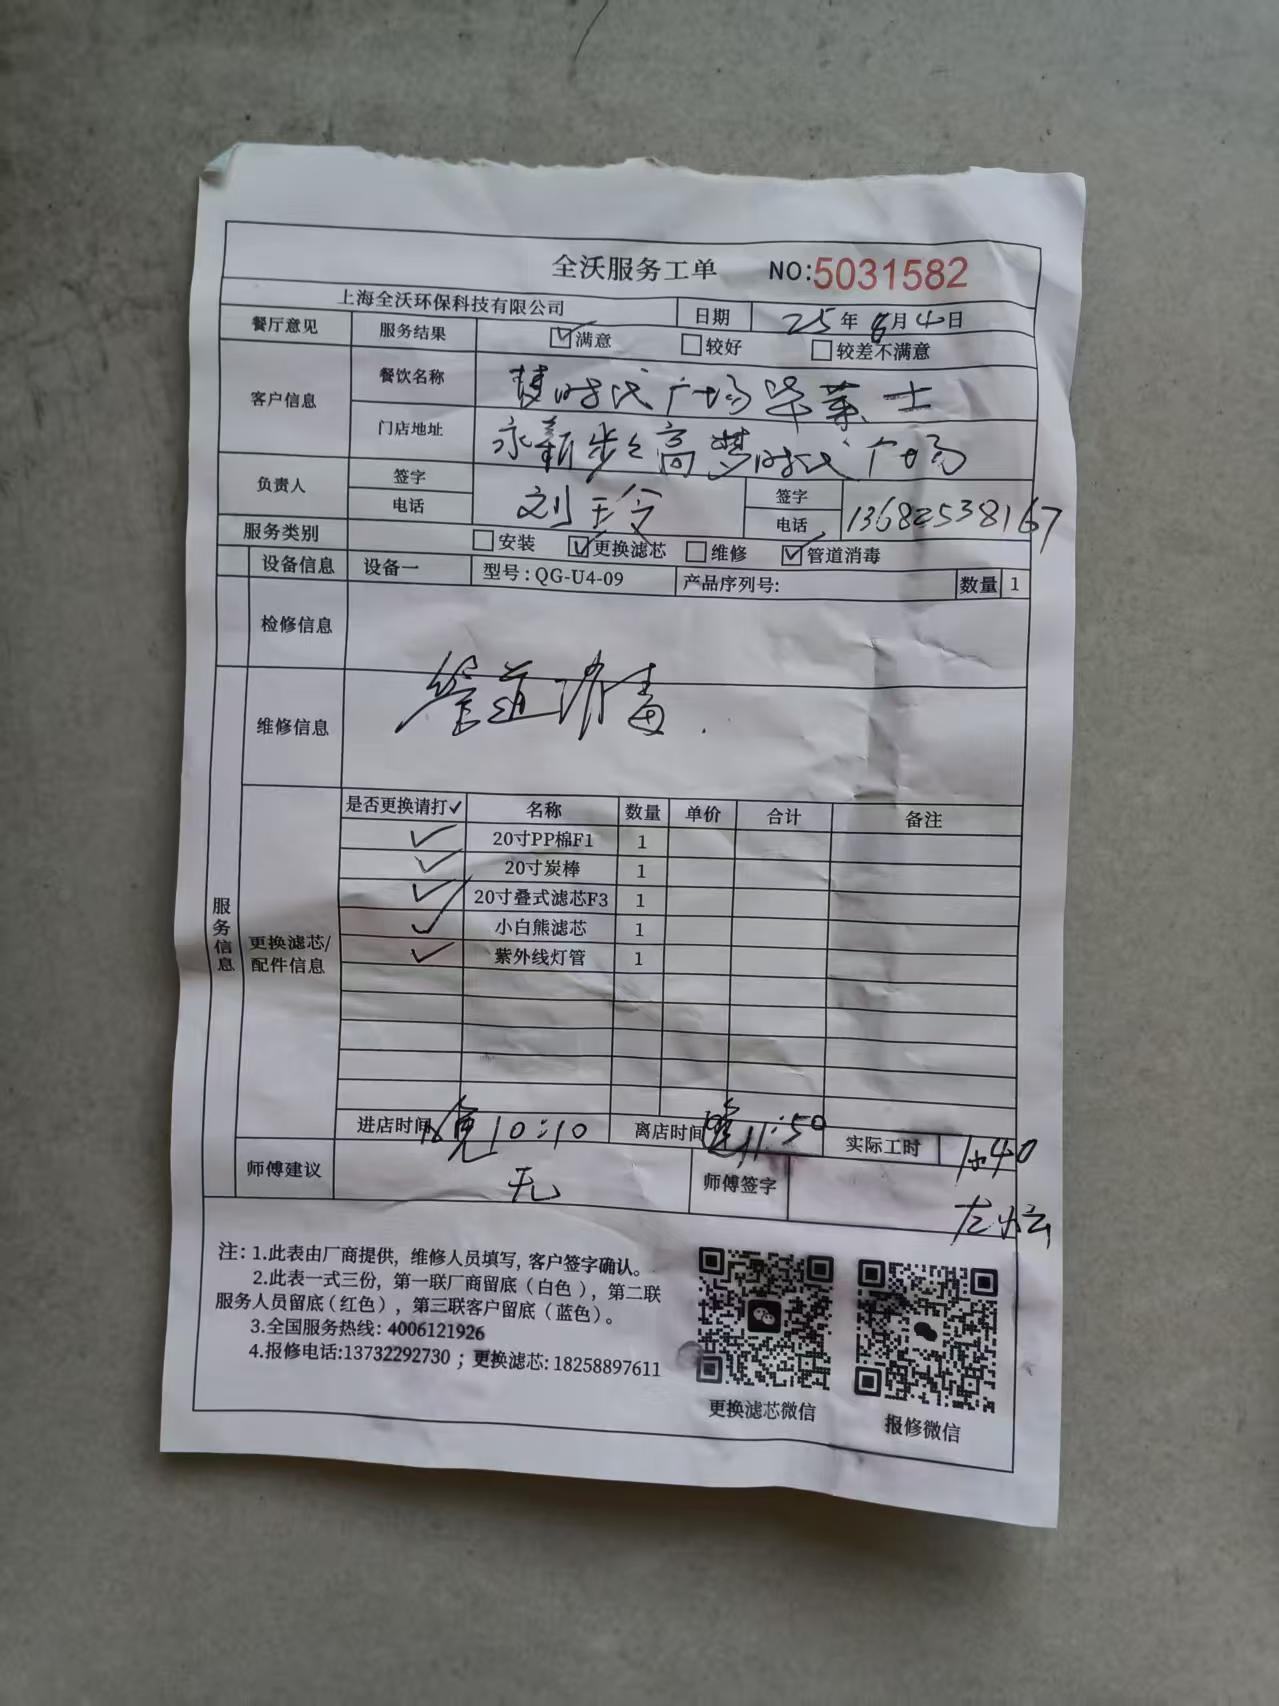 全沃服务工单 NO:5031582
上海全沃环保科技有限公司 日期 25年8月4日
餐厅意见 服务结果 ☑满意 □较好 □较差不满意
客户信息 餐饮名称 梦时代广场毕莱士
门店地址 永新步步高梦时代广场
负责人 签字 电话 刘玉玲 签字 电话 13682538167
服务类别 □安装 ☑更换滤芯 □维修 ☑管道消毒
设备信息 设备一 型号：QG-U4-09 产品序列号: 数量 1
检修信息
维修信息 管道消毒.
服务信息
更换滤芯/配件信息
是否更换请打✓ 名称 数量 单价 合计 备注
✓ 20寸PP棉F1 1
✓ 20寸炭棒 1
✓ 20寸叠式滤芯F3 1
✓ 小白熊滤芯 1
✓ 紫外线灯管 1
进店时间 晚10:10 离店时间 晚11:50 实际工时 1h40
师傅建议 无 师傅签字
注：1.此表由厂商提供，维修人员填写，客户签字确认。
2.此表一式三份，第一联厂商留底（白色），第二联
服务人员留底（红色），第三联客户留底（蓝色）。
3.全国服务热线：4006121926
4.报修电话:13732292730；更换滤芯：18258897611
更换滤芯微信 报修微信